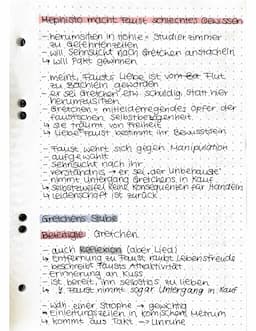 Mephisto macht Faust schlechtes Gewissen
- herumsitzen in Höhle = Studierzimmer
zu Gelehrtenzeiten
- will Sehnsucht nach Gretchen anstacheln
↳ will Pakt gewinnen
- meint, Fausts Liebe ist vom Flut
zu Bächlein geworden
- er sei Gretchen etw schuldig statt hier
herumzusitzen
- Gretchen = mitleiderregendes Opfer der
faustischen Selbstbezogenheit
↳ sie träumt von Freiheit
↳ Liebe Faust bestimmt ihr Bewusstsein
- Faust wehrt sich gegen Manipulation
- aufgewühlt
- Sehnsucht nach ihr
- Verständnis → er sei der Unbehauste
- nimmt Untergang Gretchens in Kauf
↳ Selbstzweifel keine Konsequenzen für Handeln
↳ Leidenschaft ist zurück
Gretchens Stube
Beteiligte: Gretchen
- auch Reflexion (aber Lied)
↳ Entfernung zu Faust raubt Lebensfreude
- beschreibt Fausts Attraktivität
- Erinnerung an Kuss
- ist bereit, ihn selbstlos zu lieben
↳ Faust nimmt sogar Untergang in Kauf
- Wdh. einer Strophe → gewichtig
- Einleitungszeilen in komischem Metrum
↳ kommt aus Takt → Unruhe